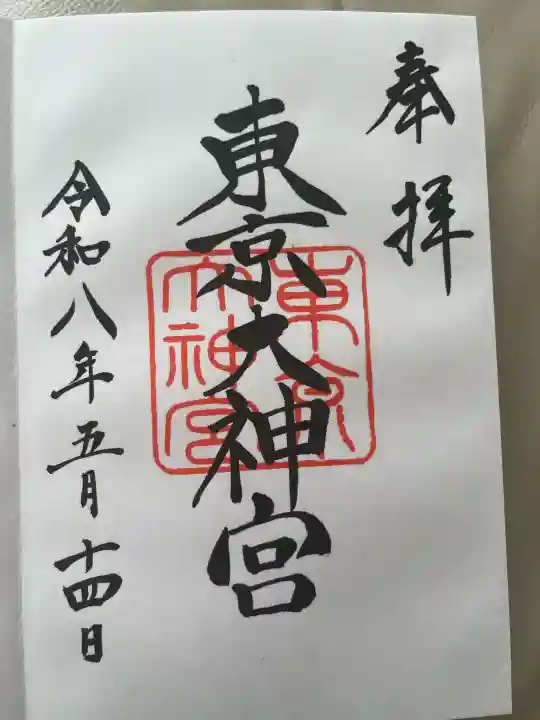 奉拝
東京大神宮
東京大神宮
令和八年五月十四日